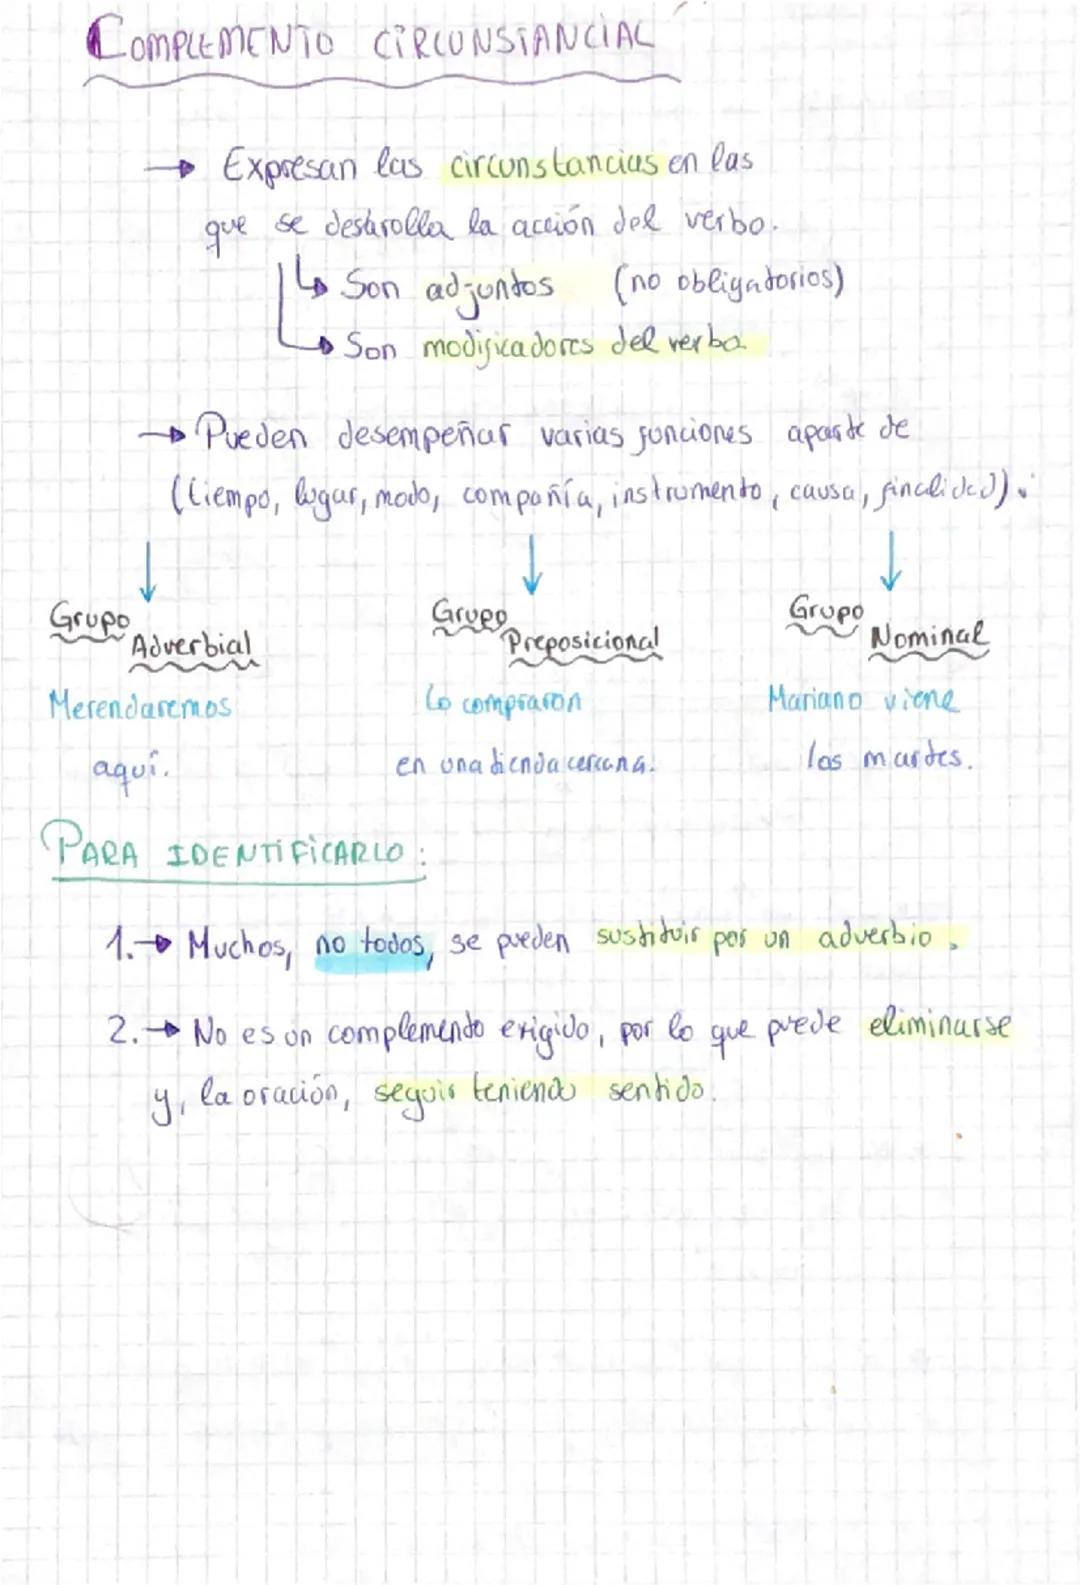 COMPLEMENTO CIRCUNSTANCIAL
→ Expresan las circunstancias en las
que se desarolla la acción del verbo.
↳ Son adjuntos (no obligatorios)
↳ Son modificadores del verbo
→ Pueden desempeñar varias funciones aparte de
(tiempo, lugar, modo, compañía, instrumento, causa, finalidad).
Grupo Adverbial
Grupo Preposicional
Grupo Nominal
Merendaremos
aquí.
Lo compraron
en una tienda cercana.
Mariano viene
los martes.
PARA IDENTIFICARLO:
1.→ Muchos, no todos, se pueden sustituir por un adverbio.
2.→ No es un complemento exigido, por lo que puede eliminarse
y, la oración, seguir teniendo sentido.